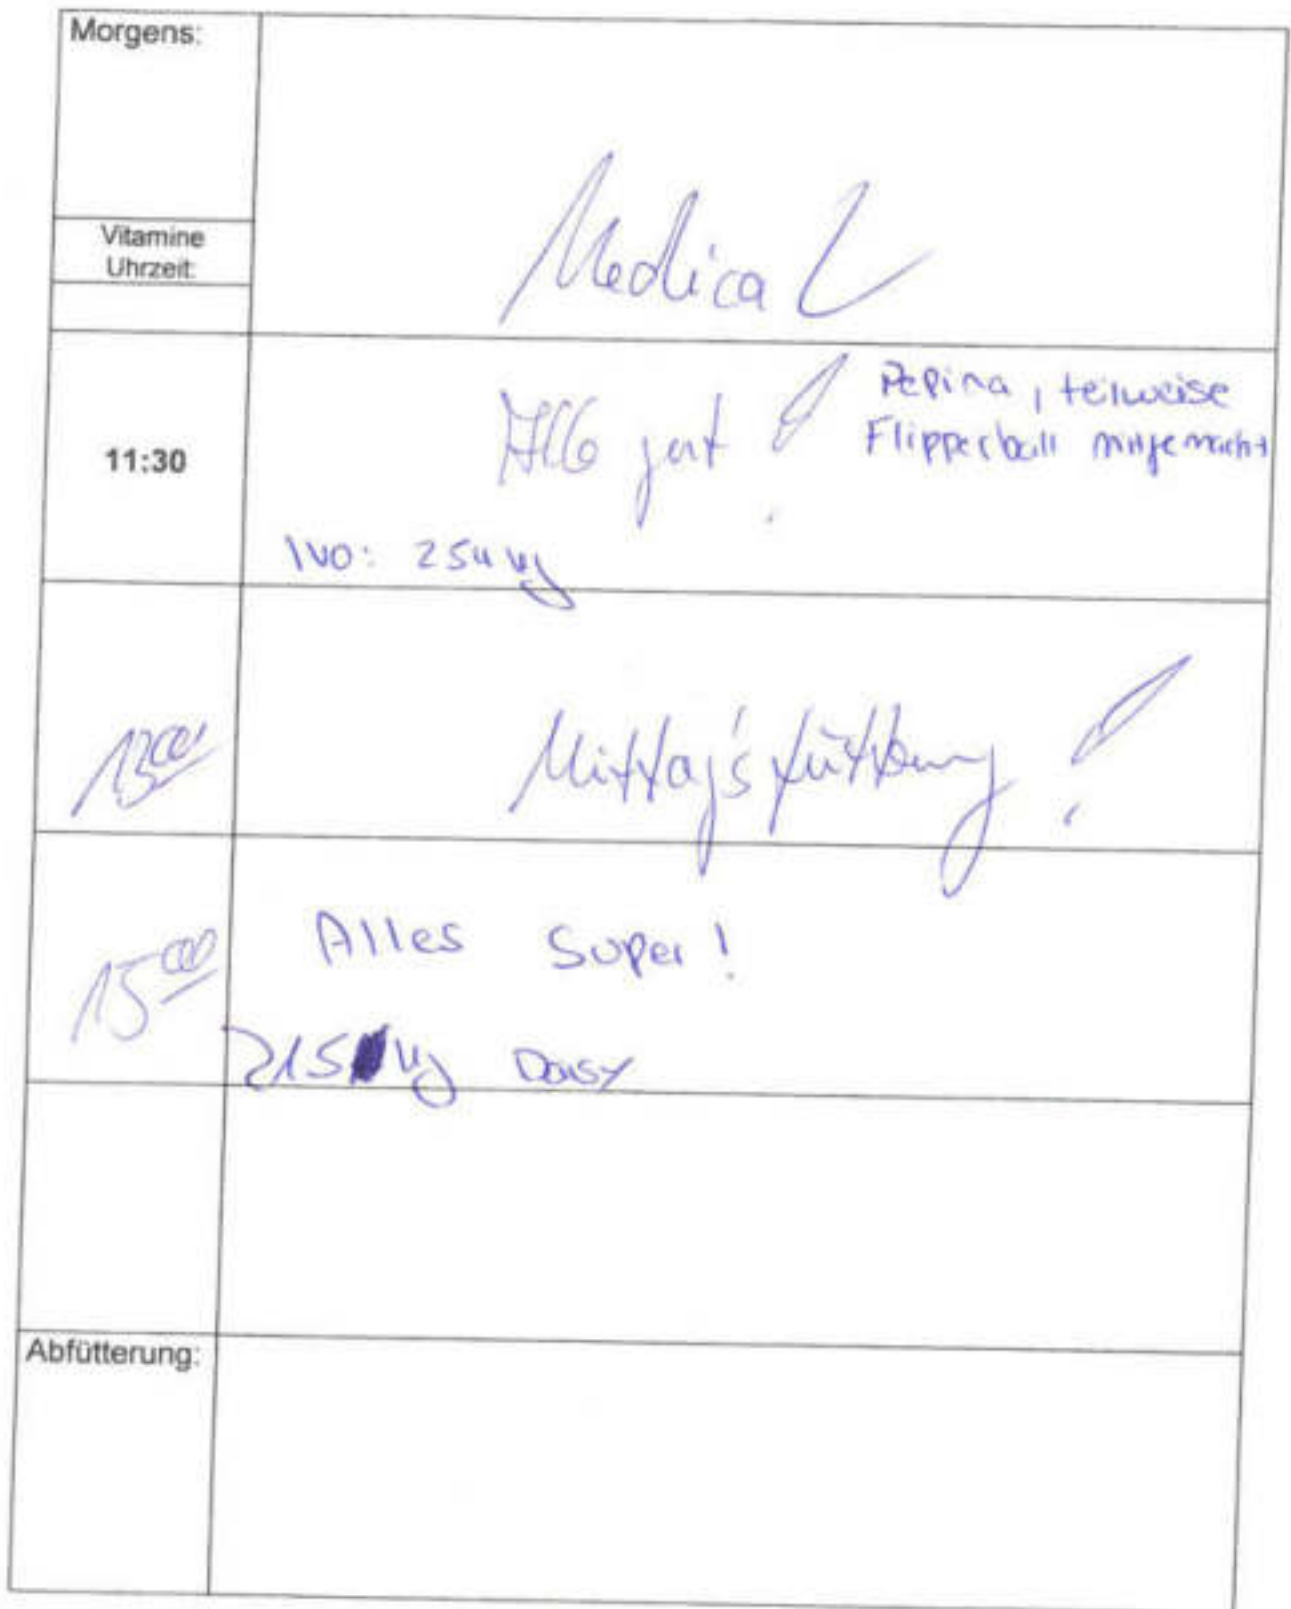 Morgens:
Vitamine
Uhrzeit:
Medical
11:30
gut !
Pepina, teilweise
Flipperball mitgemacht
IVO: 254 kg
13:00
Mittag's fütterung !
15:00
Alles Super!
215 kg Daisy
Abfütterung: